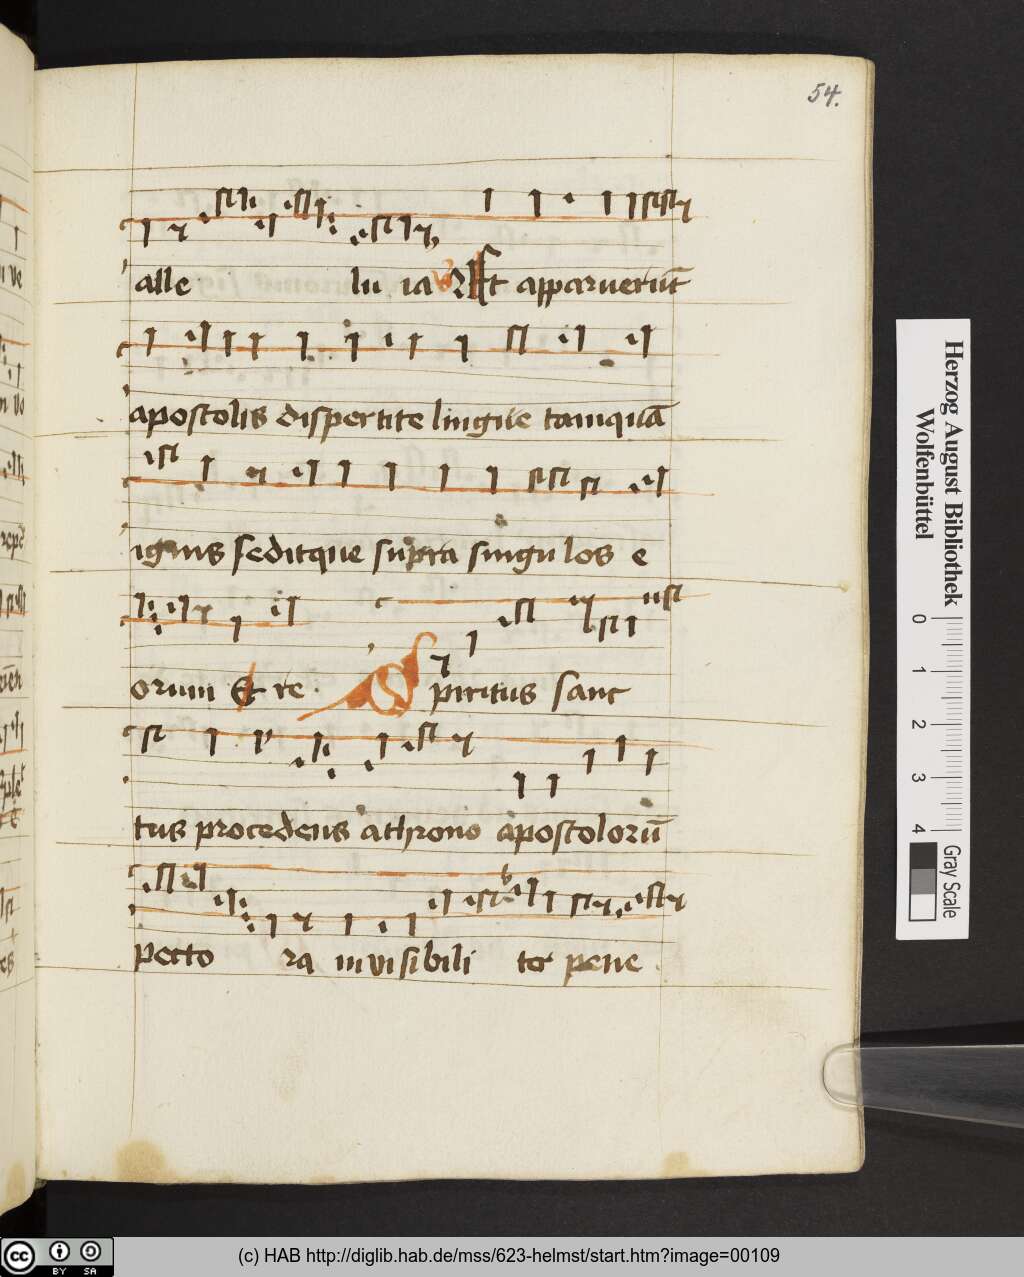 54.
alle lu ia V Et apparuerūt
apostolis dispertite lingue tamquā
ignis seditque supra singulos e
orum Et re Spiritus sanc
tus procedens a throno apostolorū
pecto ra invisibili ter pene
Herzog August Bibliothek
Wolfenbüttel
0 1 2 3 4
Gray Scale
cc BY SA
(c) HAB http://diglib.hab.de/mss/623-helmst/start.htm?image=00109